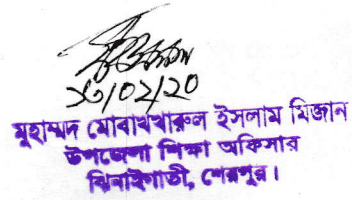 ২৩/০২/২০
মুহাম্মদ মোবাখখারুল ইসলাম মিজান
উপজেলা শিক্ষা অফিসার
ঝিনাইগাতী, শেরপুর।